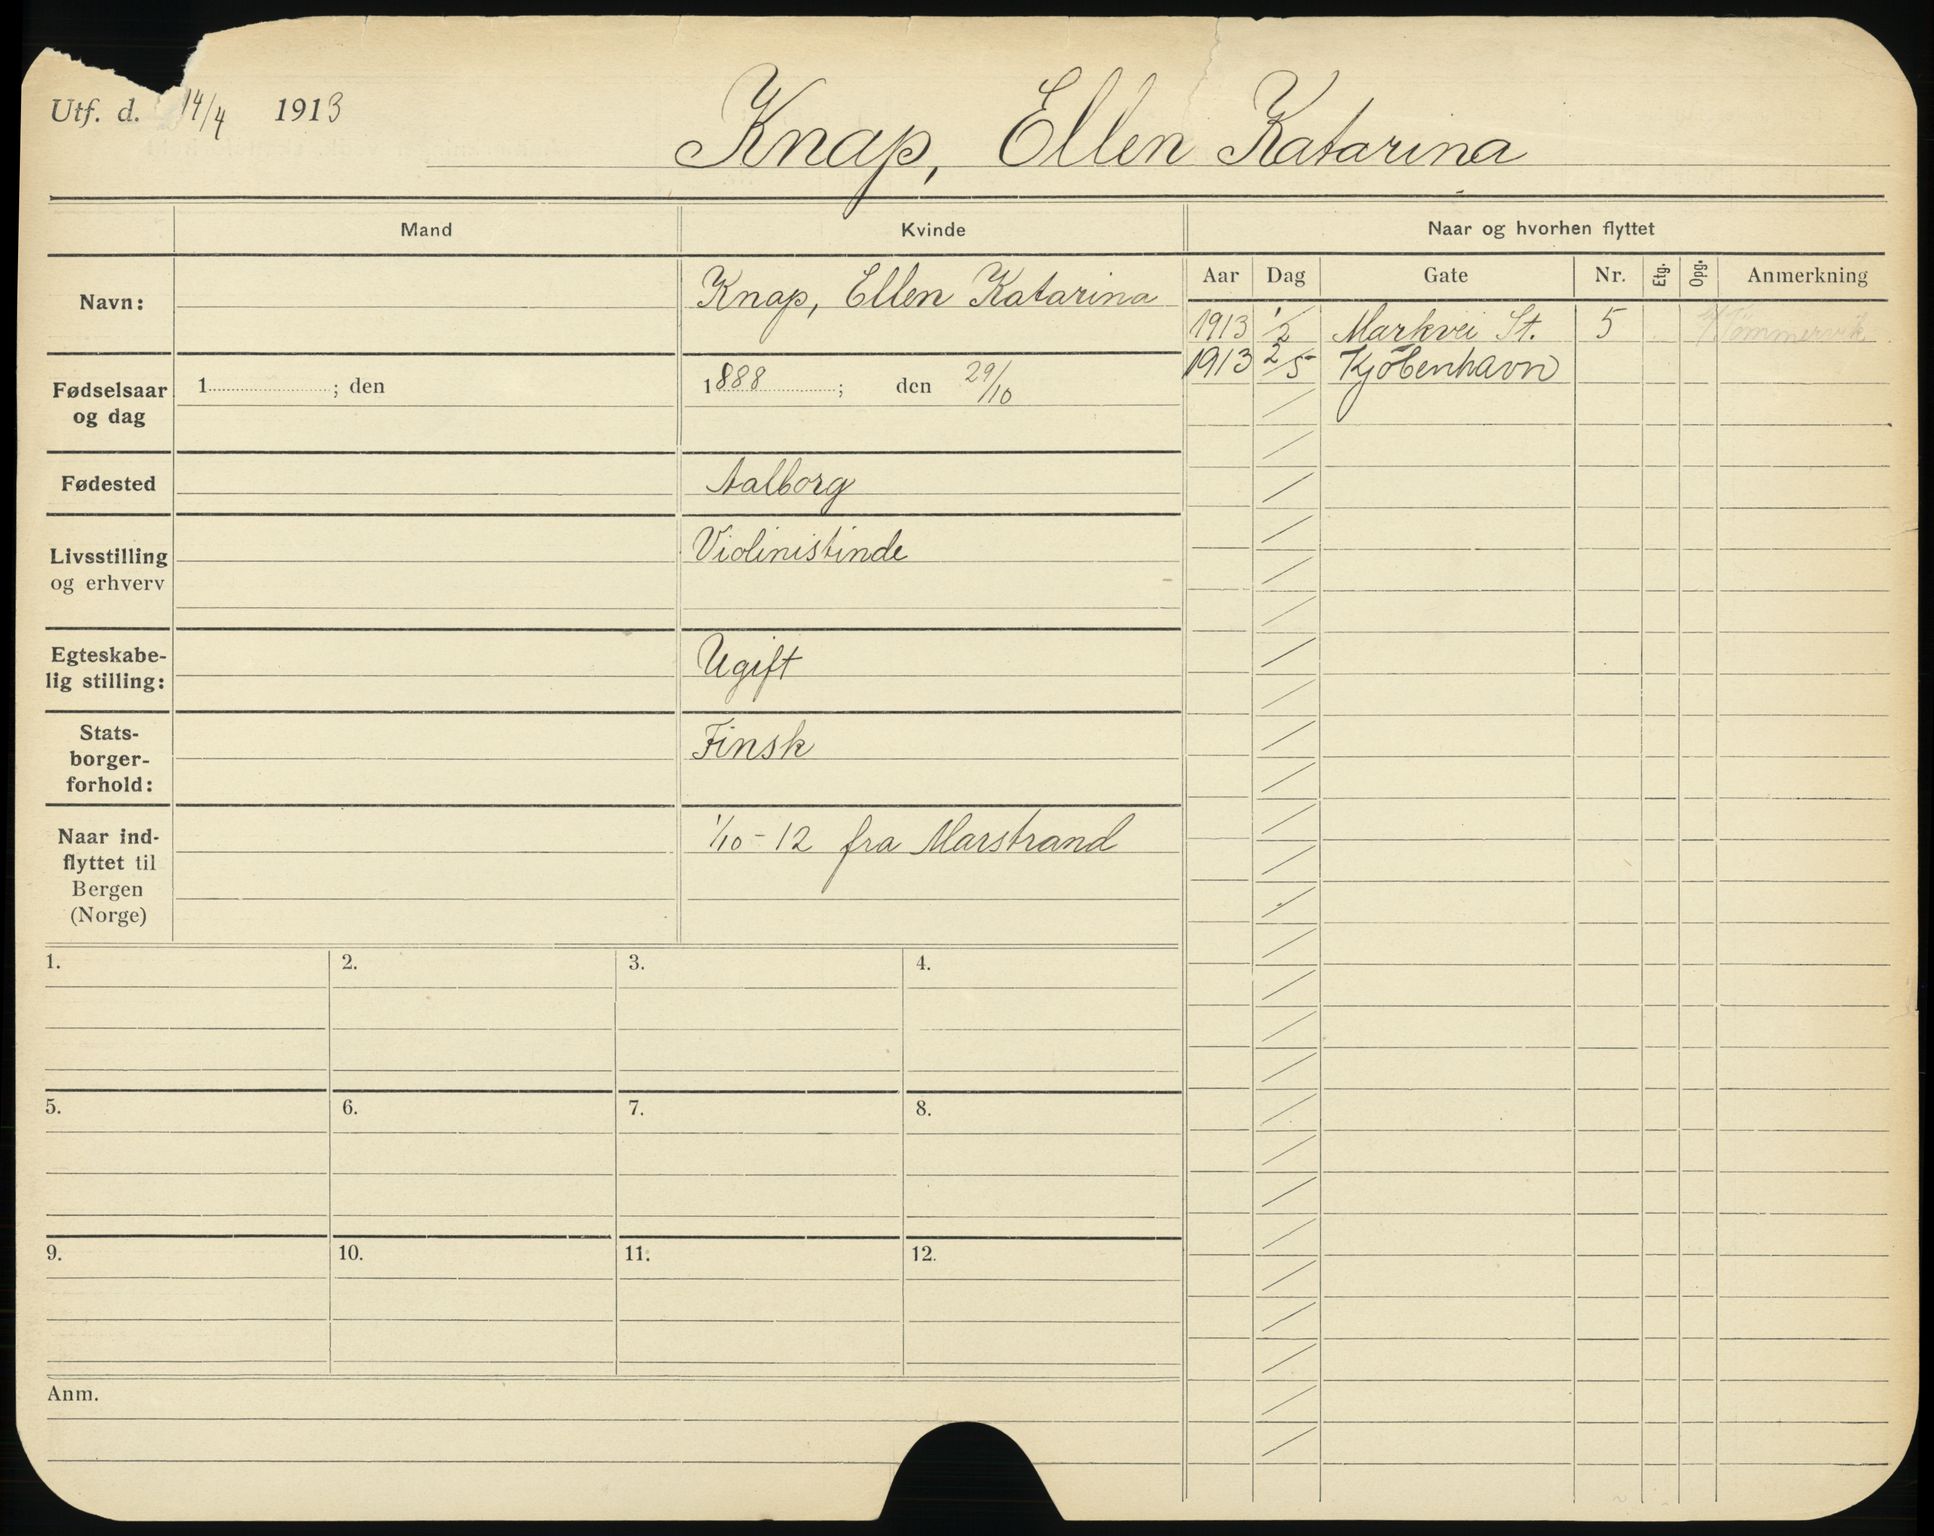 Utf. d. 14/4 1913
Knap, Ellen Katarina
Mand
Kvinde
Naar og hvorhen flyttet
Aar Dag Gate Nr. Etg. Opg. Anmerkning
Navn:
Knap, Ellen Katarina
1913 1/2 Markvei St. 5 Tømmervik
1913 2/5 Kjöbenhavn
Fødselsaar
og dag
1 ; den
1888 ; den 29/10
Fødested
Aalborg
Livsstilling
og erhverv
Violinistinde
Egteskabe-
lig stilling:
Ugift
Stats-
borger-
forhold:
Finsk
Naar ind-
flyttet til
Bergen
(Norge)
1/10 - 12 fra Marstrand
1. 2. 3. 4.
5. 6. 7. 8.
9. 10. 11. 12.
Anm.